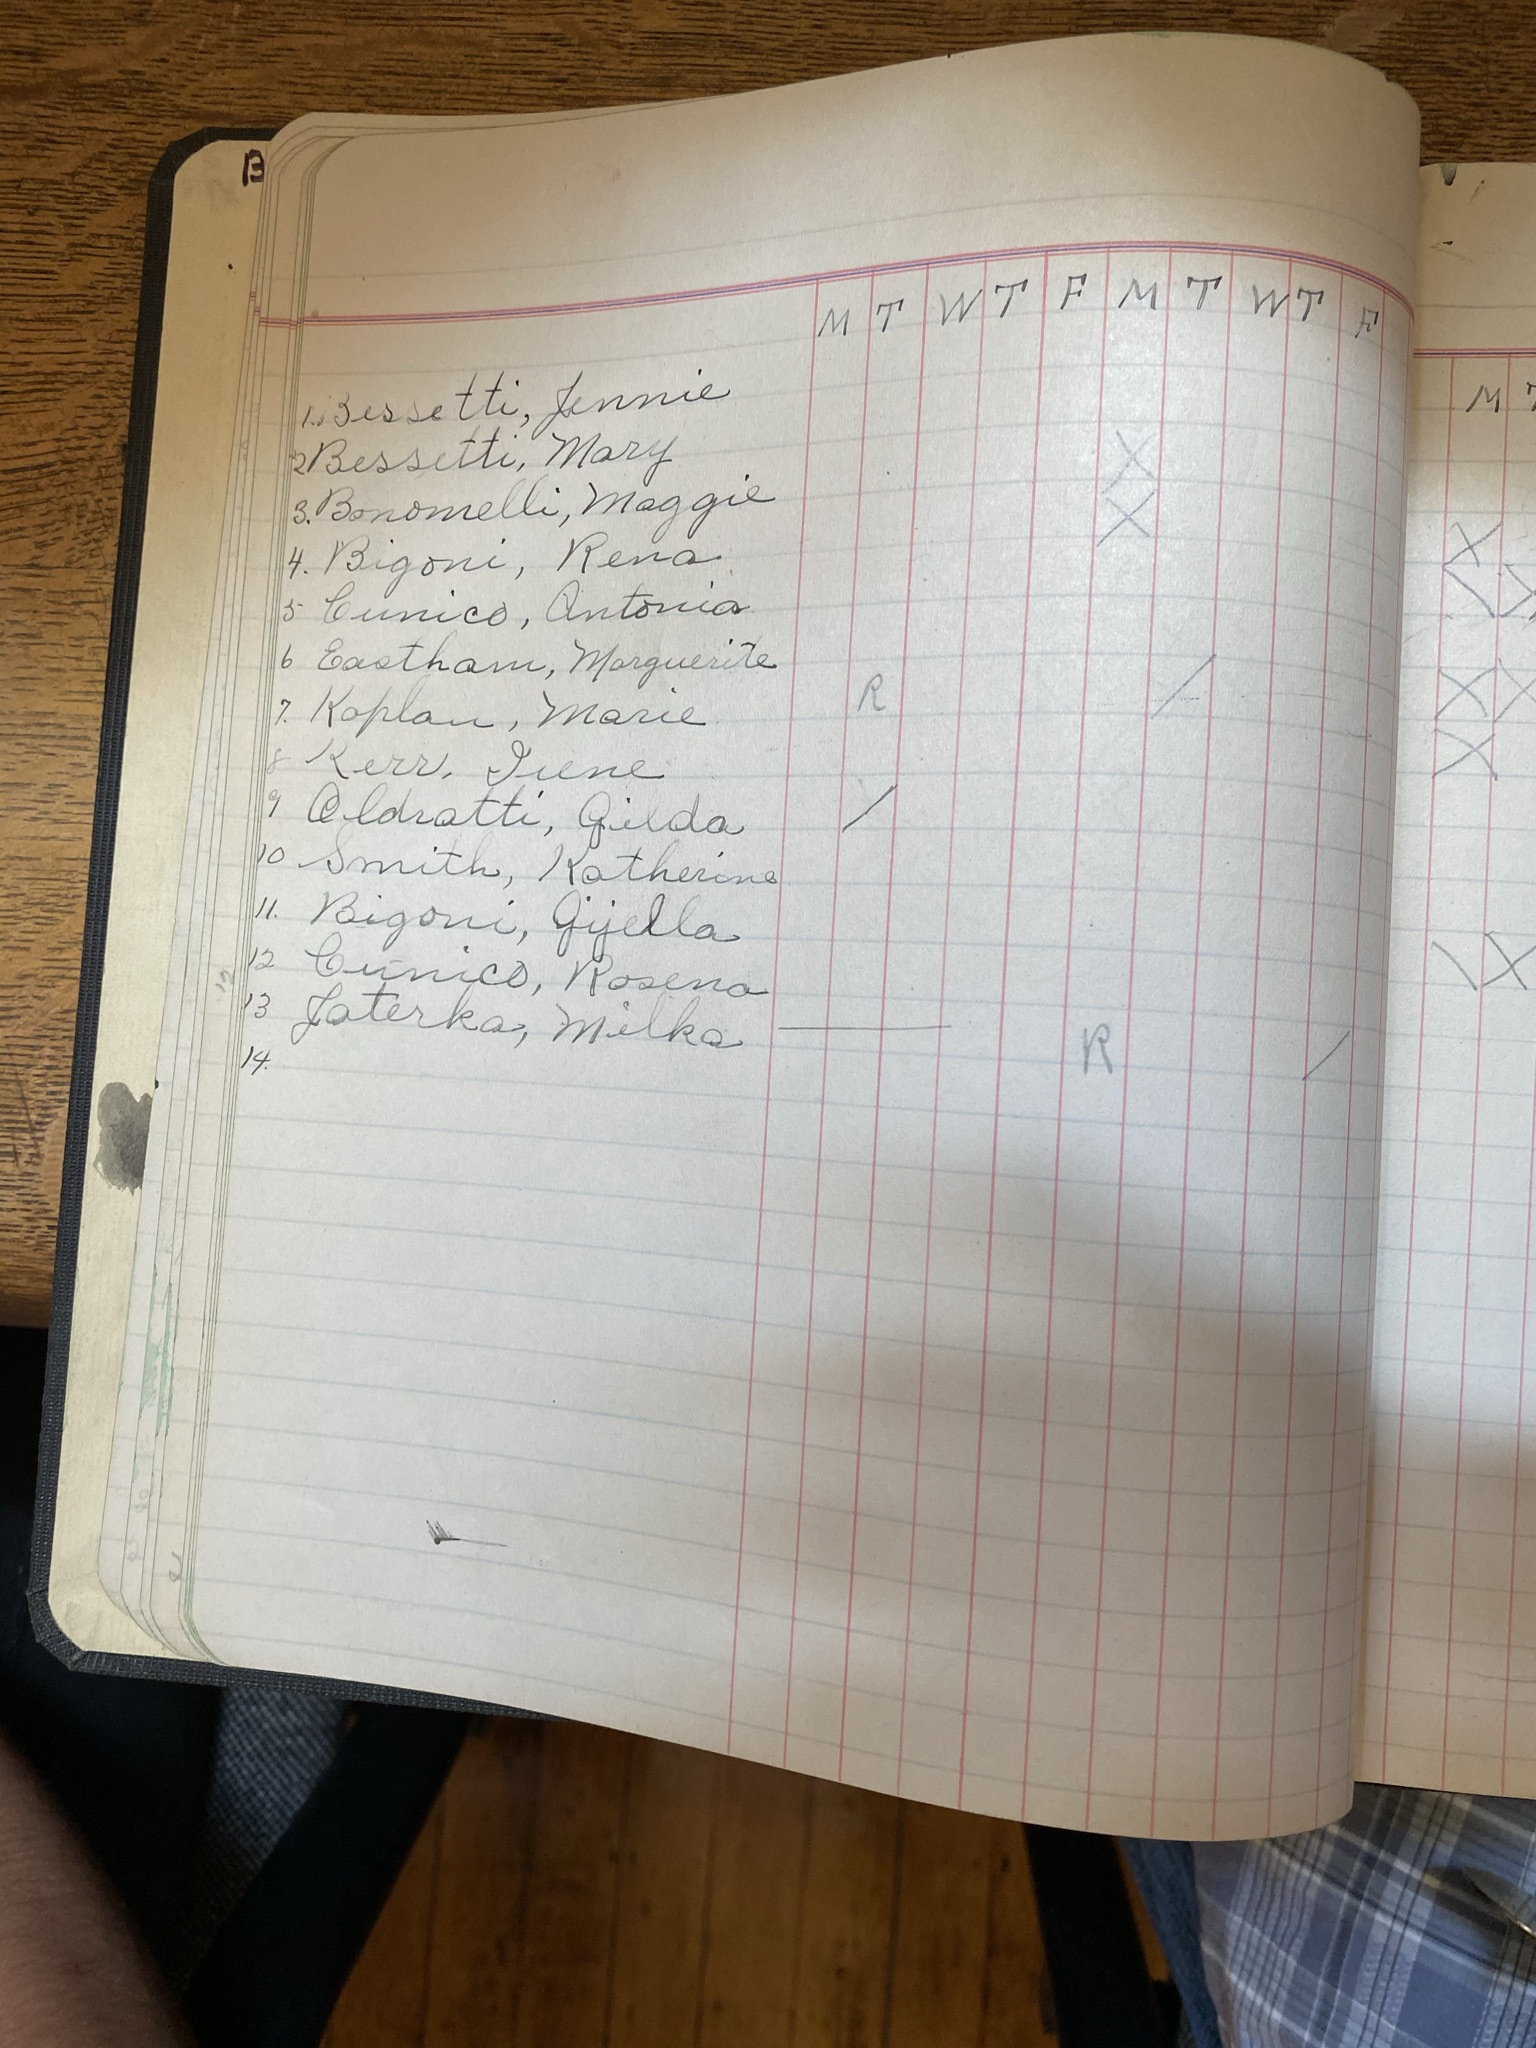 B
M T W T F M T W T F
M T
1. Bessetti, Jennie
2 Bessetti, Mary X
3. Bonomelli, Maggie X
4. Bigoni, Rena X
5 Cunico, Antonia \ X
6 Eastham, Marguerite
7. Kaplan, Marie R / X X
8 Kerr, Irene X
9 Aldratti, Gilda /
10 Smith, Katherine
11. Bigoni, Gijella
12 Cunico, Rosena \ X
13 Jaterka, Milka R /
14.